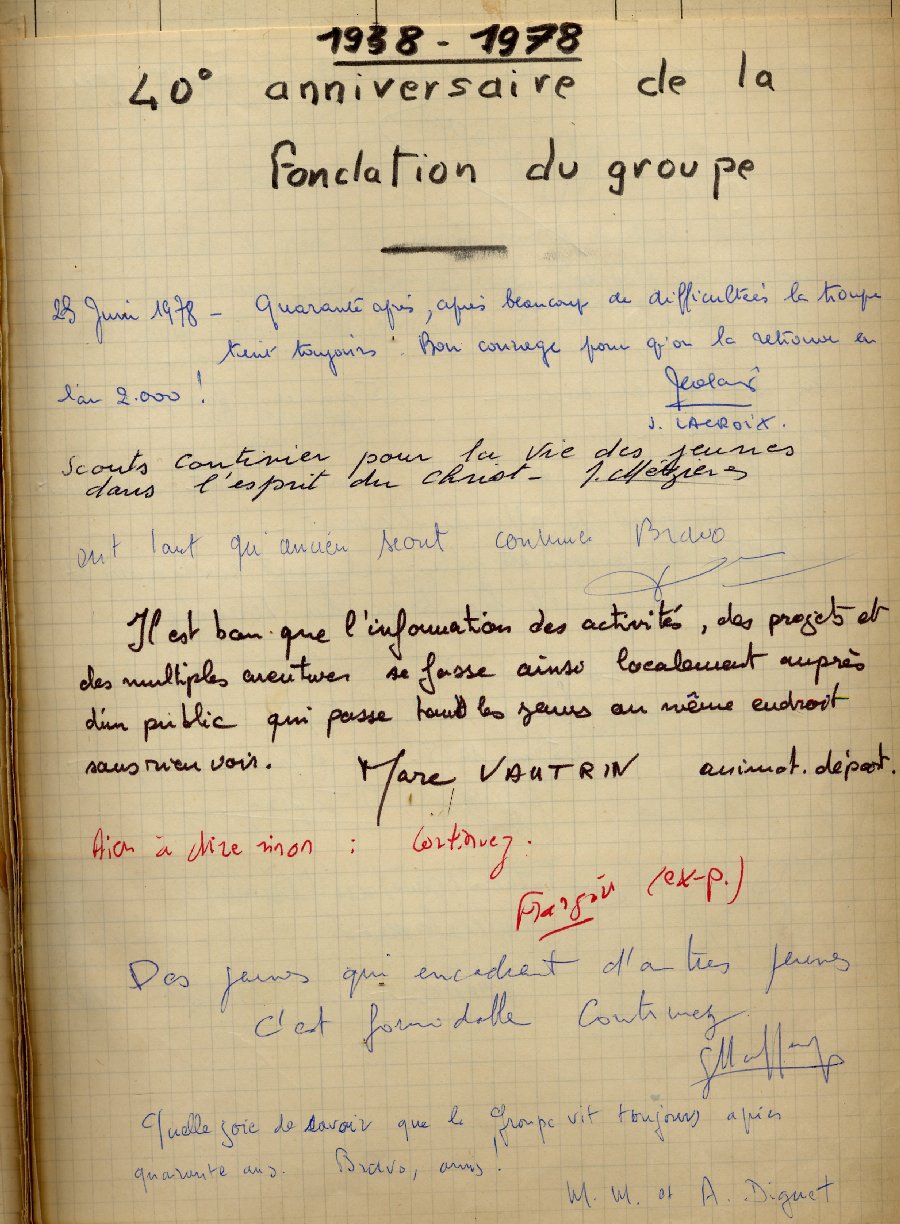 1938 - 1978
40° anniversaire de la
Fondation du groupe
23 Juin 1978 - Quarante après, après beaucoup de difficultées la troupe
tient toujours. Bon courage pour qu'on la retrouve en
l'an 2.000 !
J. LACROIX.
Scouts continuer pour la vie des jeunes
dans l'esprit du Christ - J. Mézières
ont tant qu'ancien scout continue Bravo
Il est bon que l'information des activités, des projets et
des multiples aventures se fasse ainsi localement auprès
d'un public qui passe tous les jours au même endroit
sans rien voir. Marc VAUTRIN animat. départ.
Rien à dire sinon : Continuez.
François (ex-p.)
Des jeunes qui encadrent d'autres jeunes
c'est formidable Continuez
Quelle joie de savoir que le groupe vit toujours après
quarante ans. Bravo, amis !
M. M. et A. Diguet